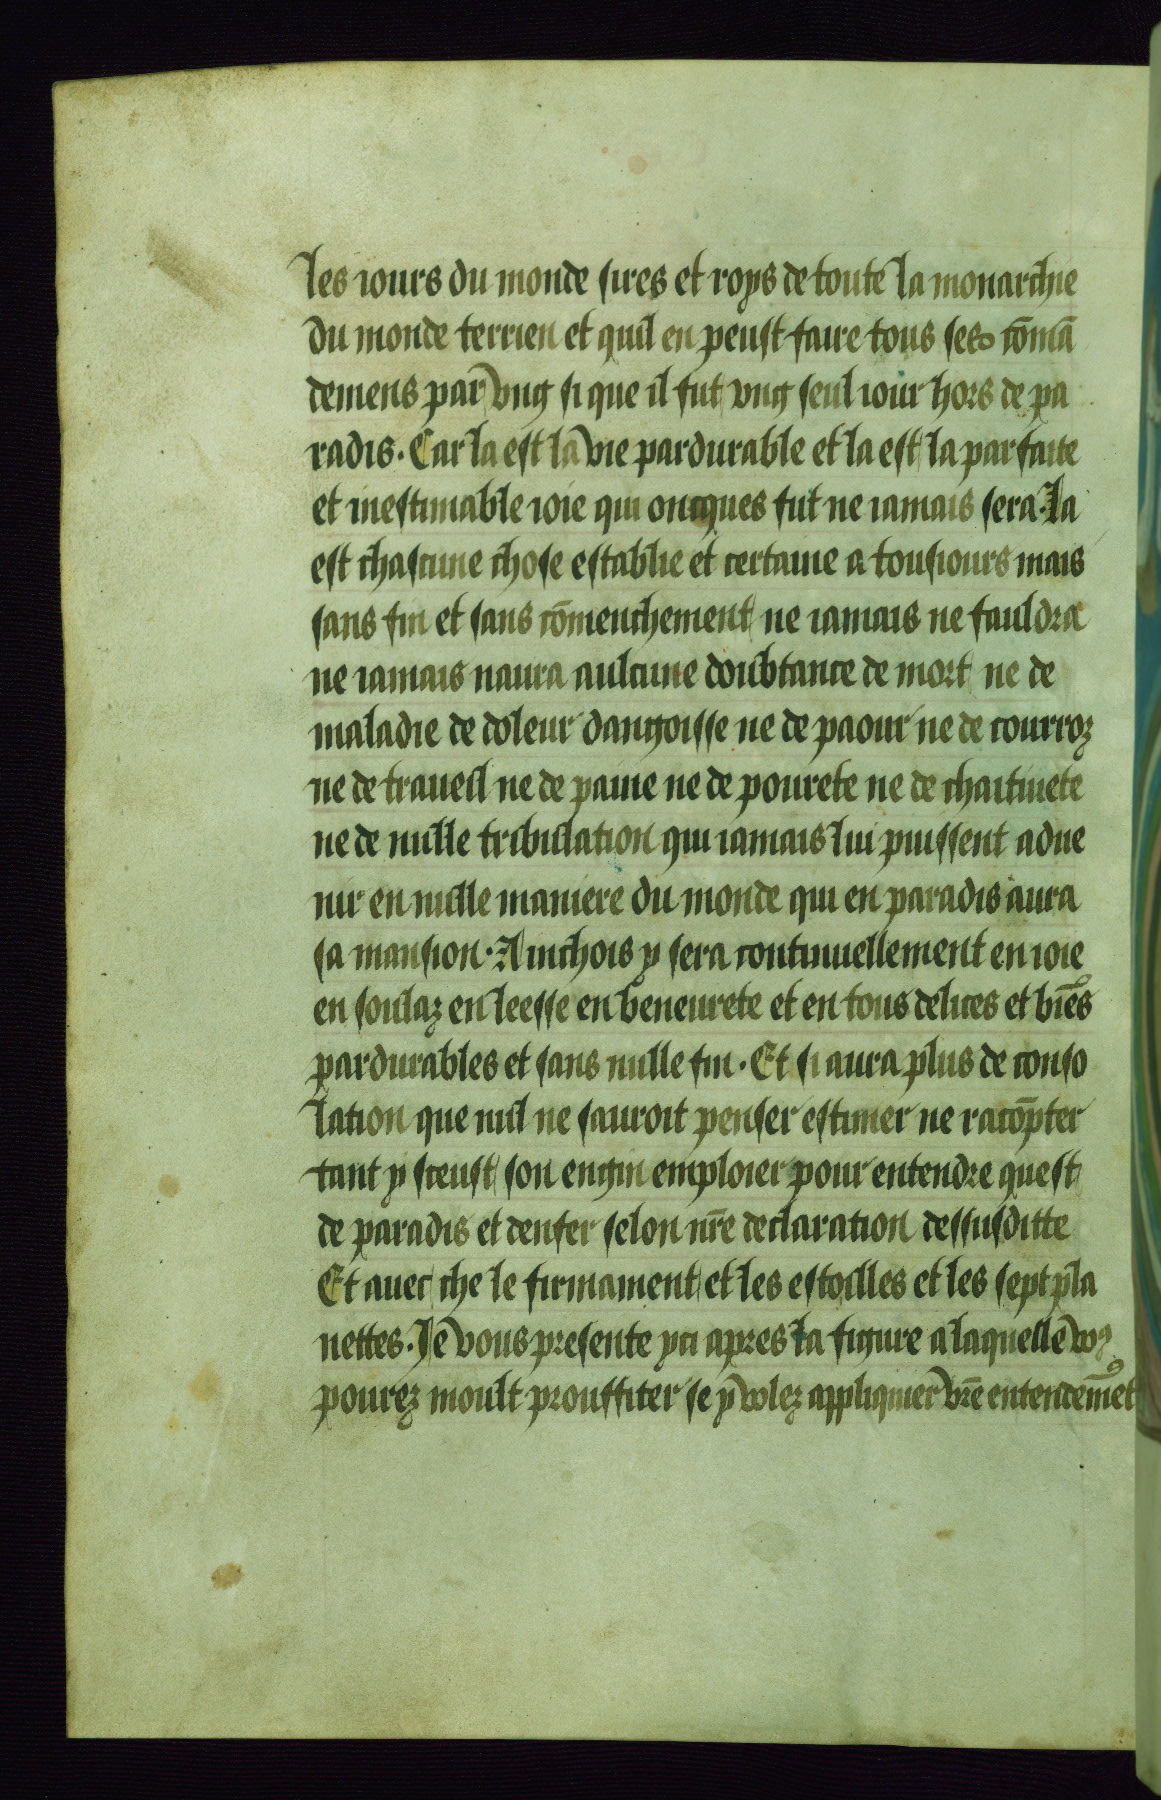 les iours du monde sires et roys de toute la monarchie
du monde terrien et quil en peust faire tous ses cōmā
demens par vng si que il fut vng seul iour hors de pa
radis. Car la est la vie pardurable et la est la parfaite
et inestimable ioie qui oncques fut ne iamais sera. La
est chascune chose establie et certaine a tousiours mais
sans fin et sans cōmenchement ne iamais ne fauldra
ne iamais naura aulcune doubtance de mort ne de
maladie de doleur dangoisse ne de paour ne de courroz
ne de traueil ne de paine ne de pourete ne de chaitiuete
ne de nulle tribulation qui iamais lui puissent adue
nir en nulle maniere du monde qui en paradis aura
sa mansion. Ainchois y sera continuellement en ioie
en soulaz en leesse en beneurete et en tous delices et biēs
pardurables et sans nulle fin. Et si aura plus de conso
lation que nul ne sauroit penser estimer ne racōpter
tant y sceust son engin emploier pour entendre quest
de paradis et denfer selon nr̄e declaration dessusditte
Et auec che le firmament et les estoilles et les sept pla
nettes. Je vous presente yci apres la figure a laquelle vo9
pourez moult prouffiter se y volez appliquier vr̄e entendem̄et